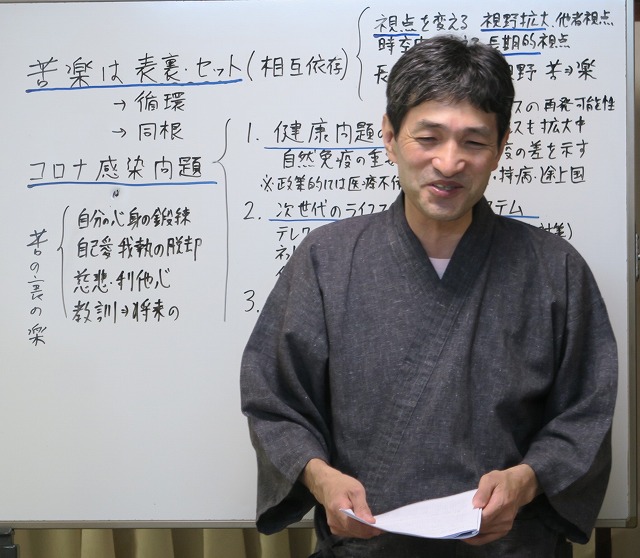 苦楽は表裏・セット(相互依存)
→循環
→同根
コロナ感染問題
苦の裏の楽
自分の心身の鍛練
自己愛・我執の脱却
慈悲・利他心
教訓⇒将来の
視点を変える 視野拡大、他者視点
長期的視点
視野 苦⇒楽
1. 健康問題の
スの再発可能性
スも拡大中
自然免疫の重
疫の差を示す
※政策的には医療不
・持病・途上国
2. 次世代のライフス
ステム
テレワ
ネッ
3.